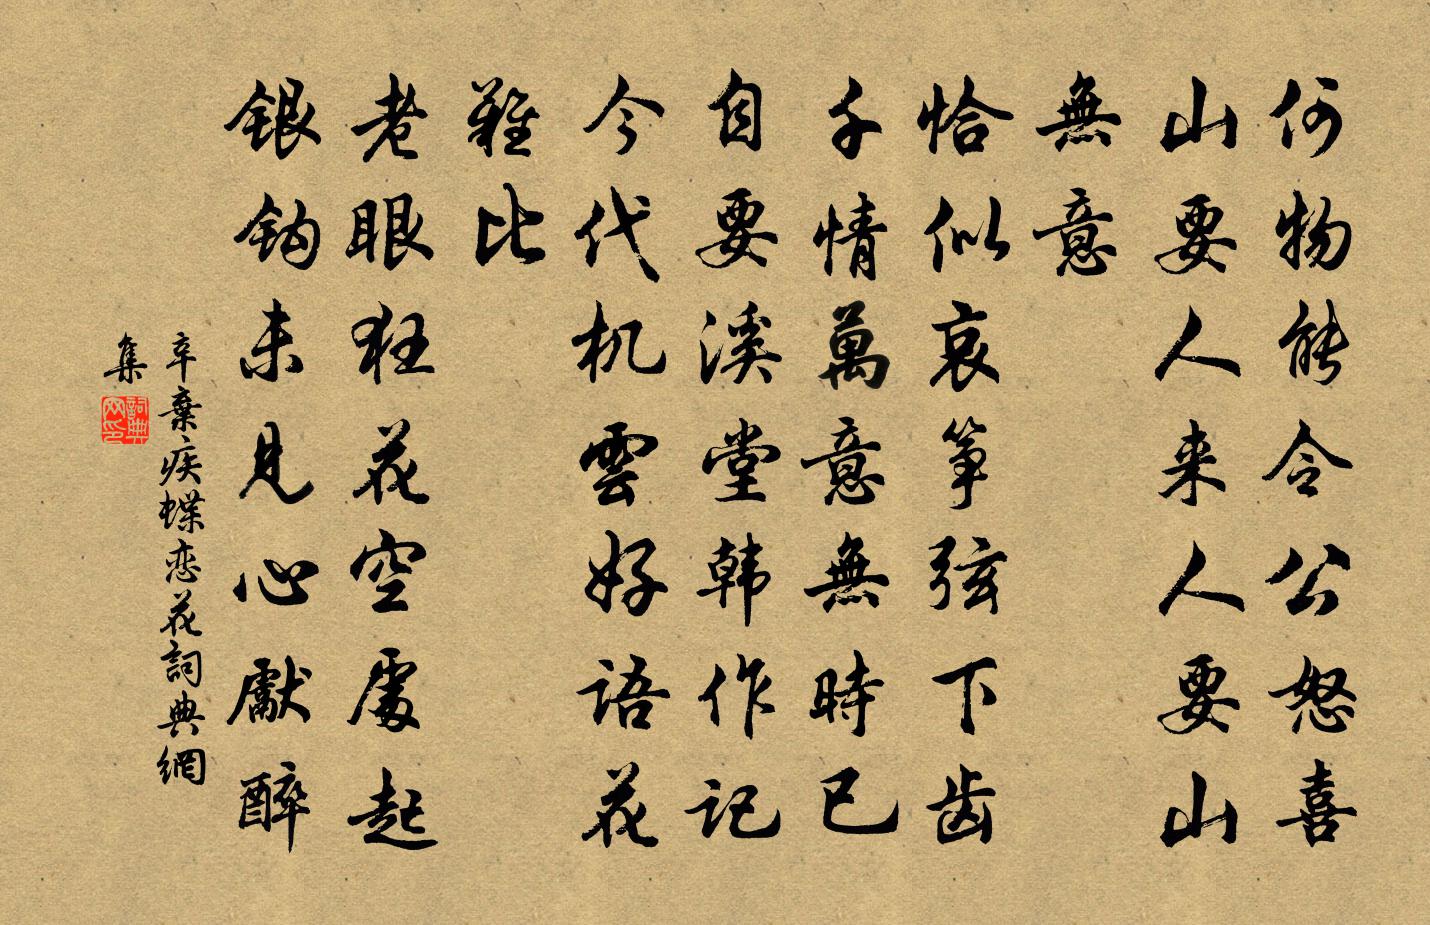 何物能令公怒喜
山要人来人要山
無意
恰似哀筝弦下齿
千情萬意無時已
自要溪堂韩作记
今代机雲好语花
難比
老眼狂花空處起
银钩未见心獻醉
辛棄疾蝶恋花詞典網
集
詞典
网印